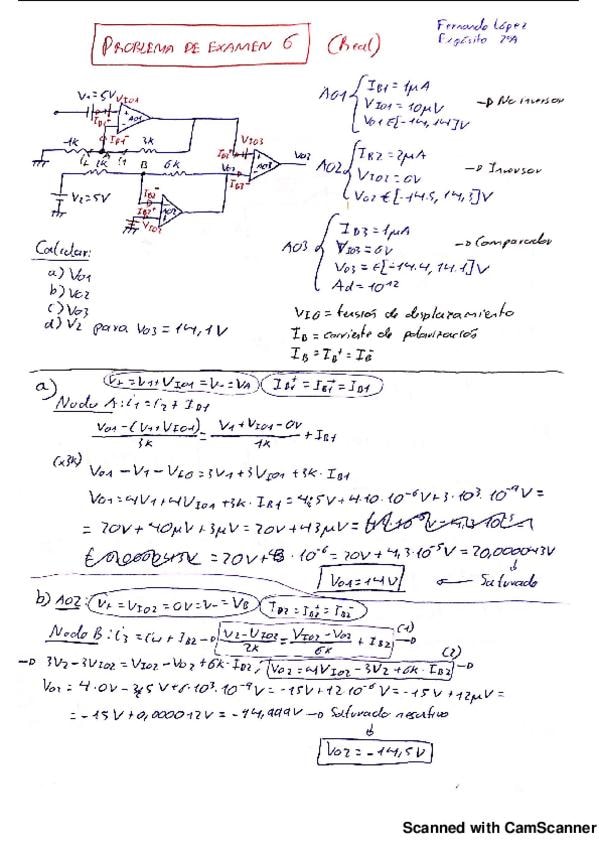 PROBLEMA DE EXAMEN 6 (Real)
Fernando López
Expósito 2ºA
V1=5V VIO1
IB1+
IB1-
+
-
AO1
1k i2 A i1 3k
2k B 6k
V2=5V
IB2-
IB2+
VIO2
AO2
VIO3
VO2
AO3
VO3
AO1 { IB1=1μA
VIO1=10μV -> No inversor
VO1 ∈[-14,14]V
AO2 { IB2=2μA
VIO2=0V -> Inversor
VO2 ∈[-14.5, 14,3]V
AO3 { IB3=1μA
VIO3=0V -> Comparador
VO3=∈[-14.4, 14.1]V
Ad=10¹²
Calcular:
a) VO1
b) VO2
c) VO3
d) V2 para VO3=14,1V
VIO=tensión de desplazamiento
IB=corriente de polarización
IB=IB+=IB-
a) V+=V1+VIO1=V-=VA IB1+=IB1-=IB1
Nodo A: i1=i2+IB1
VO1-(V1+VIO1)/3k = V1+VIO1-0V/1k + IB1
(x3k) VO1-V1-VIO=3V1+3VIO1+3k·IB1
VO1=4V1+4VIO1+3k·IB1=4·5V+4·10·10⁻⁶V+3·10³·10⁻⁹V=
=20V+40μV+3μV=20V+43μV=
=20V+43·10⁻⁶=20V+4,3·10⁻⁵V=20,000043V
VO1=14V <- Saturado
b) AO2: V+=VIO2=0V=V-=VB IB2=IB2+=IB2-
Nodo B: i3=i4+IB2 -> V2-VIO2/2k = VIO2-VO2/6k + IB2 (1) ->
-> 3V2-3VIO2=VIO2-VO2+6k·IB2, VO2=4VIO2-3V2+6k·IB2 (2) ->
VO2=4·0V-3·5V+6·10³·10⁻⁹V=-15V+12·10⁻⁶V=-15V+12μV=
=-15V+0,000012V=-14,999V -> Saturado negativo
VO2=-14,5V
Scanned with CamScanner